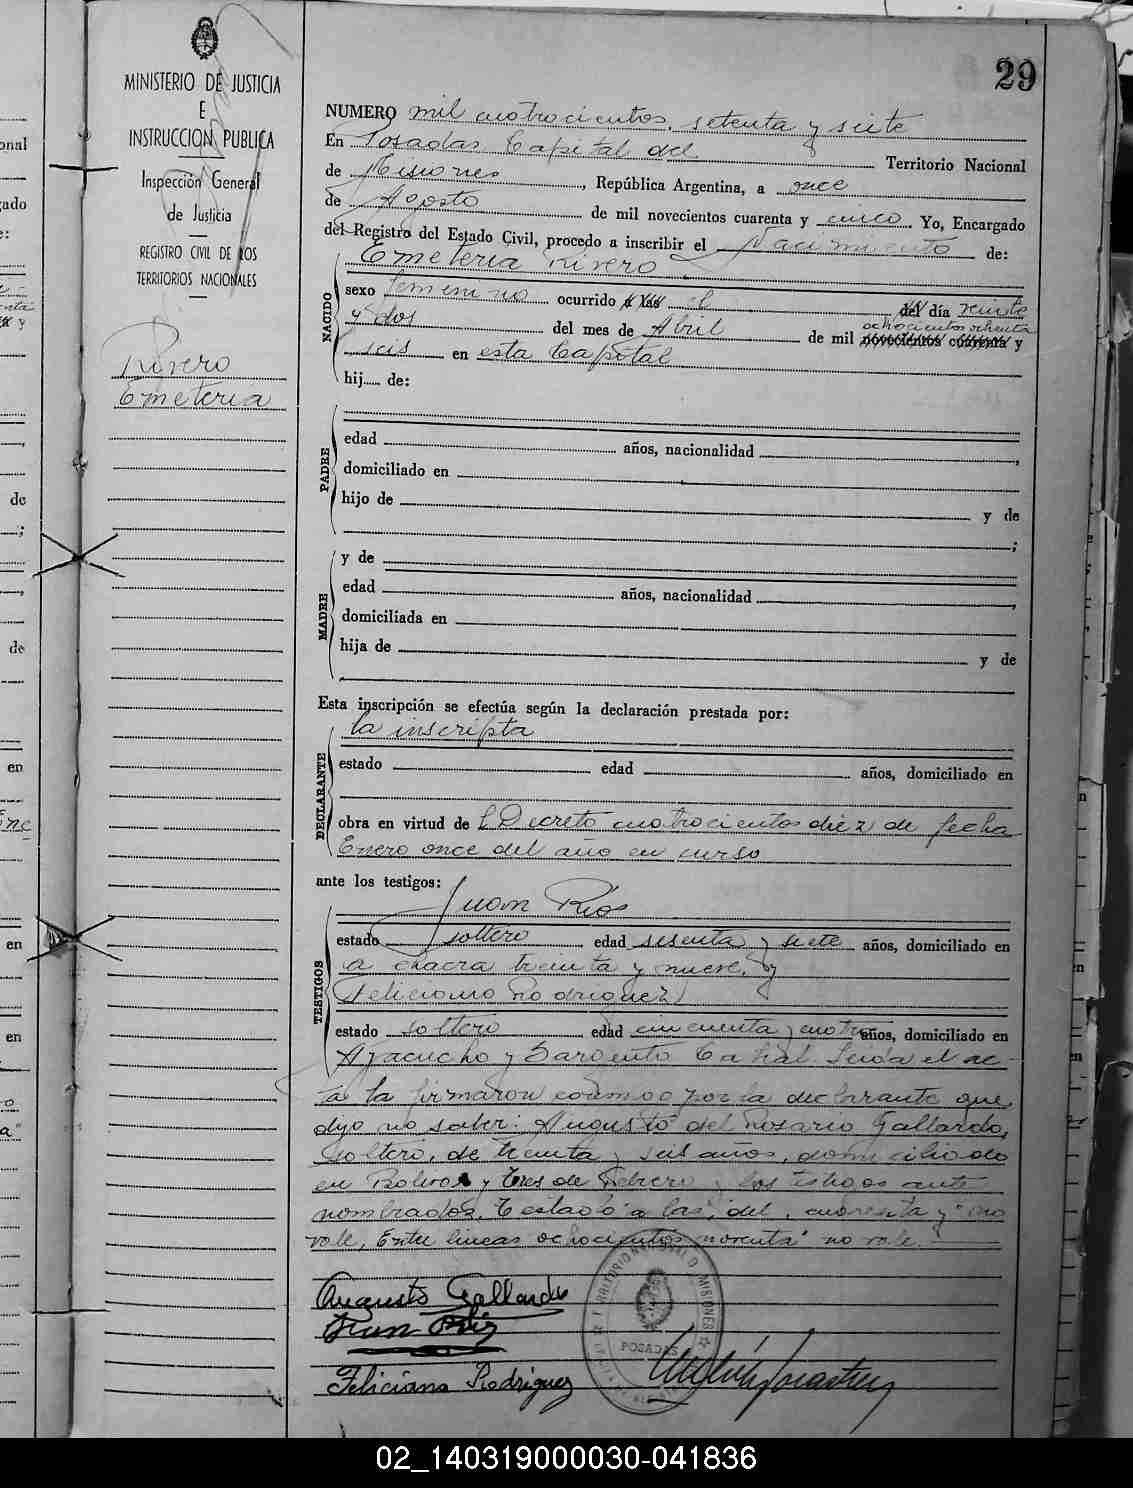 29
MINISTERIO DE JUSTICIA
E
INSTRUCCION PUBLICA
Inspección General
de Justicia
REGISTRO CIVIL DE LOS
TERRITORIOS NACIONALES
Rivero
Emeteria
NUMERO mil cuatrocientos setenta y siete
En Posadas Capital del Territorio Nacional
de Misiones, República Argentina, a once
de Agosto de mil novecientos cuarenta y cinco. Yo, Encargado
del Registro del Estado Civil, procedo a inscribir el Nacimiento de:
NACIDO
Emeteria Rivero
sexo femenino ocurrido a las el del día veinte
y dos del mes de Abril de mil novecientos cuarenta y
ochocientos ochenta
seis en esta Capital
hij de:
PADRE
edad años, nacionalidad ,
domiciliado en
hijo de y de
;
MADRE
y de
edad años, nacionalidad ,
domiciliada en
hija de y de
Esta inscripción se efectúa según la declaración prestada por:
DECLARANTE
la inscripta
estado edad años, domiciliado en
obra en virtud de l Decreto cuatrocientos diez de fecha
Enero once del año en curso
ante los testigos:
TESTIGOS
Juan Ríos
estado soltero edad sesenta y siete años, domiciliado en
a chacra treinta y nueve, y
Feliciano Rodriguez
estado soltero edad cincuenta y cuatro años, domiciliado en
Ayacucho y Sargento Cabral. Leida el ac-
ta la firmaron conmigo por la declarante que
dijo no saber: Augusto del Rosario Gallardo,
soltero, de treinta y seis años, domiciliado
en Bolivar y tres de Febrero y los testigos ante
nombrados. Testado "a las", del, cuarenta y "no
vale, Entre lineas ochocientos noventa" no vale.
Augusto Gallardo
Juan
Feliciano Rodriguez
TERRITORIO NACIONAL D MISIONES
POSADAS
02_140319000030-041836